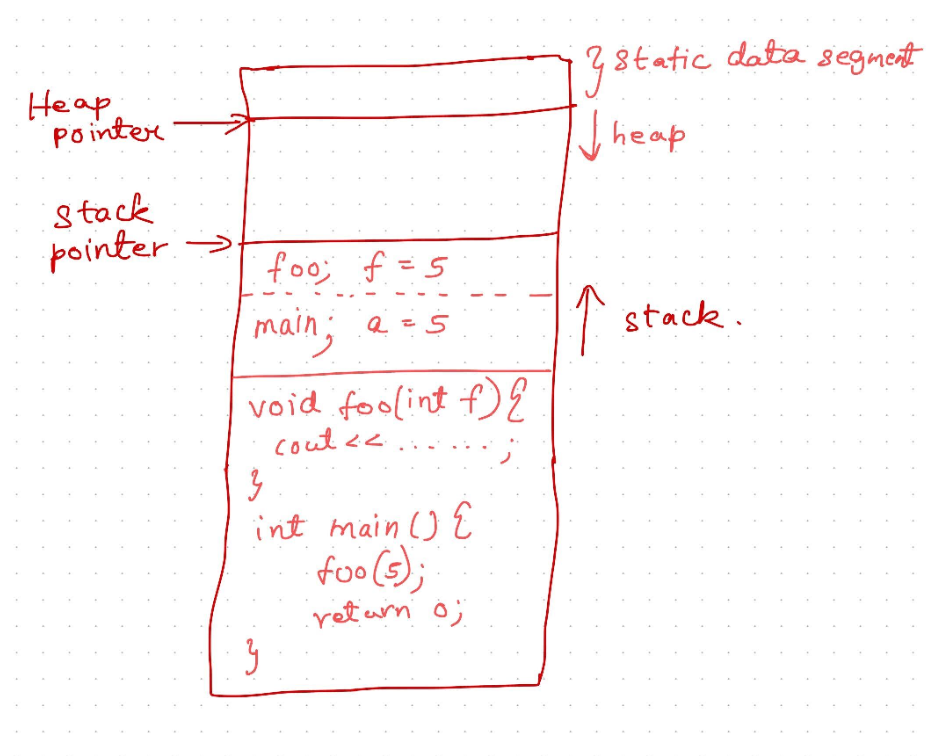 } static data segment
Heap
pointer
heap
stack
pointer
foo; f = 5
main; a = 5
stack.
void foo(int f){
cout << .......;
}
int main() {
foo(5);
return 0;
}